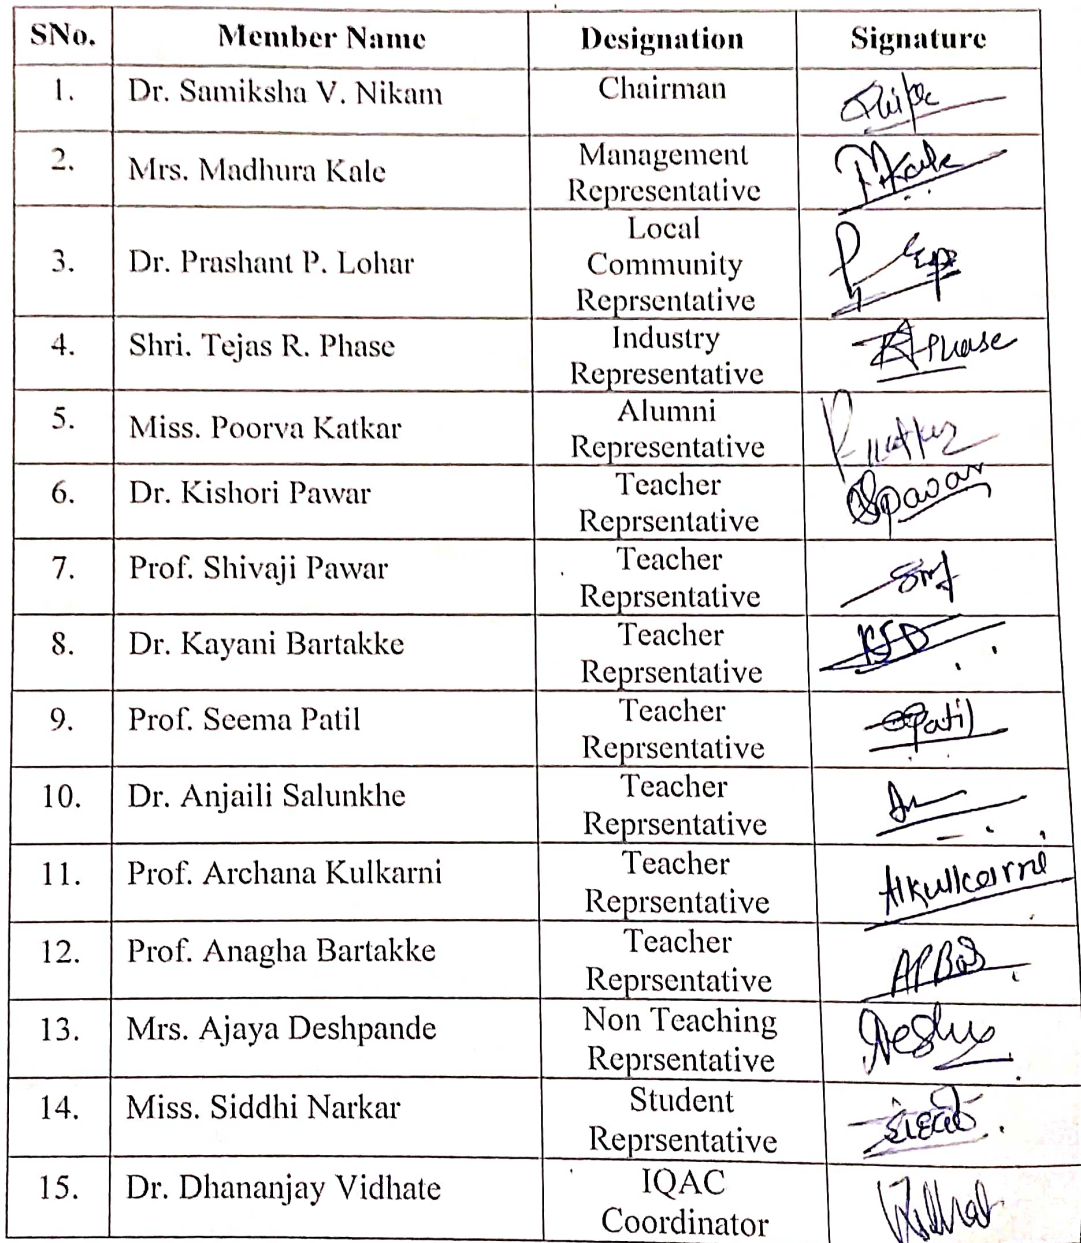 SNo. Member Name Designation Signature
1. Dr. Samiksha V. Nikam Chairman
2. Mrs. Madhura Kale Management
Representative
3. Dr. Prashant P. Lohar Local
Community
Reprsentative
4. Shri. Tejas R. Phase Industry
Representative
5. Miss. Poorva Katkar Alumni
Representative
6. Dr. Kishori Pawar Teacher
Reprsentative
7. Prof. Shivaji Pawar Teacher
Reprsentative
8. Dr. Kayani Bartakke Teacher
Reprsentative
9. Prof. Seema Patil Teacher
Reprsentative
10. Dr. Anjaili Salunkhe Teacher
Reprsentative
11. Prof. Archana Kulkarni Teacher AKulkarni
Reprsentative
12. Prof. Anagha Bartakke Teacher
Reprsentative
13. Mrs. Ajaya Deshpande Non Teaching
Reprsentative
14. Miss. Siddhi Narkar Student
Reprsentative
15. Dr. Dhananjay Vidhate IQAC
Coordinator